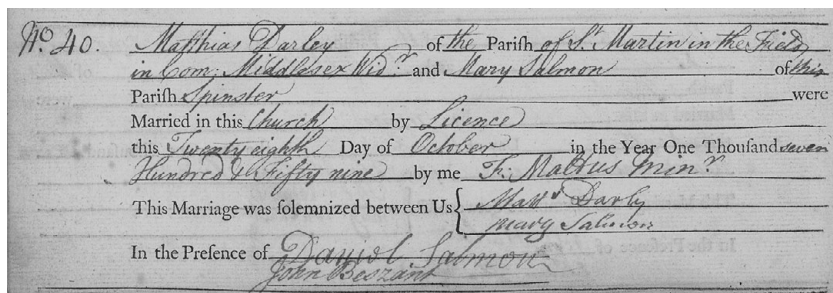 No. 40. Matthias Darley of the Parish of St Martin in the Field
in Com; Middlesex Widr. and Mary Salmon of this
Parish Spinster were
Married in this Church by Licence
this Twenty eighth Day of October in the Year One Thousand seven
Hundred & Fifty nine by me Fr: Maltus Minr.
This Marriage was solemnized between Us { Mattw Darly
Mary Salmon
In the Presence of Daniel Salmon
John Beszant